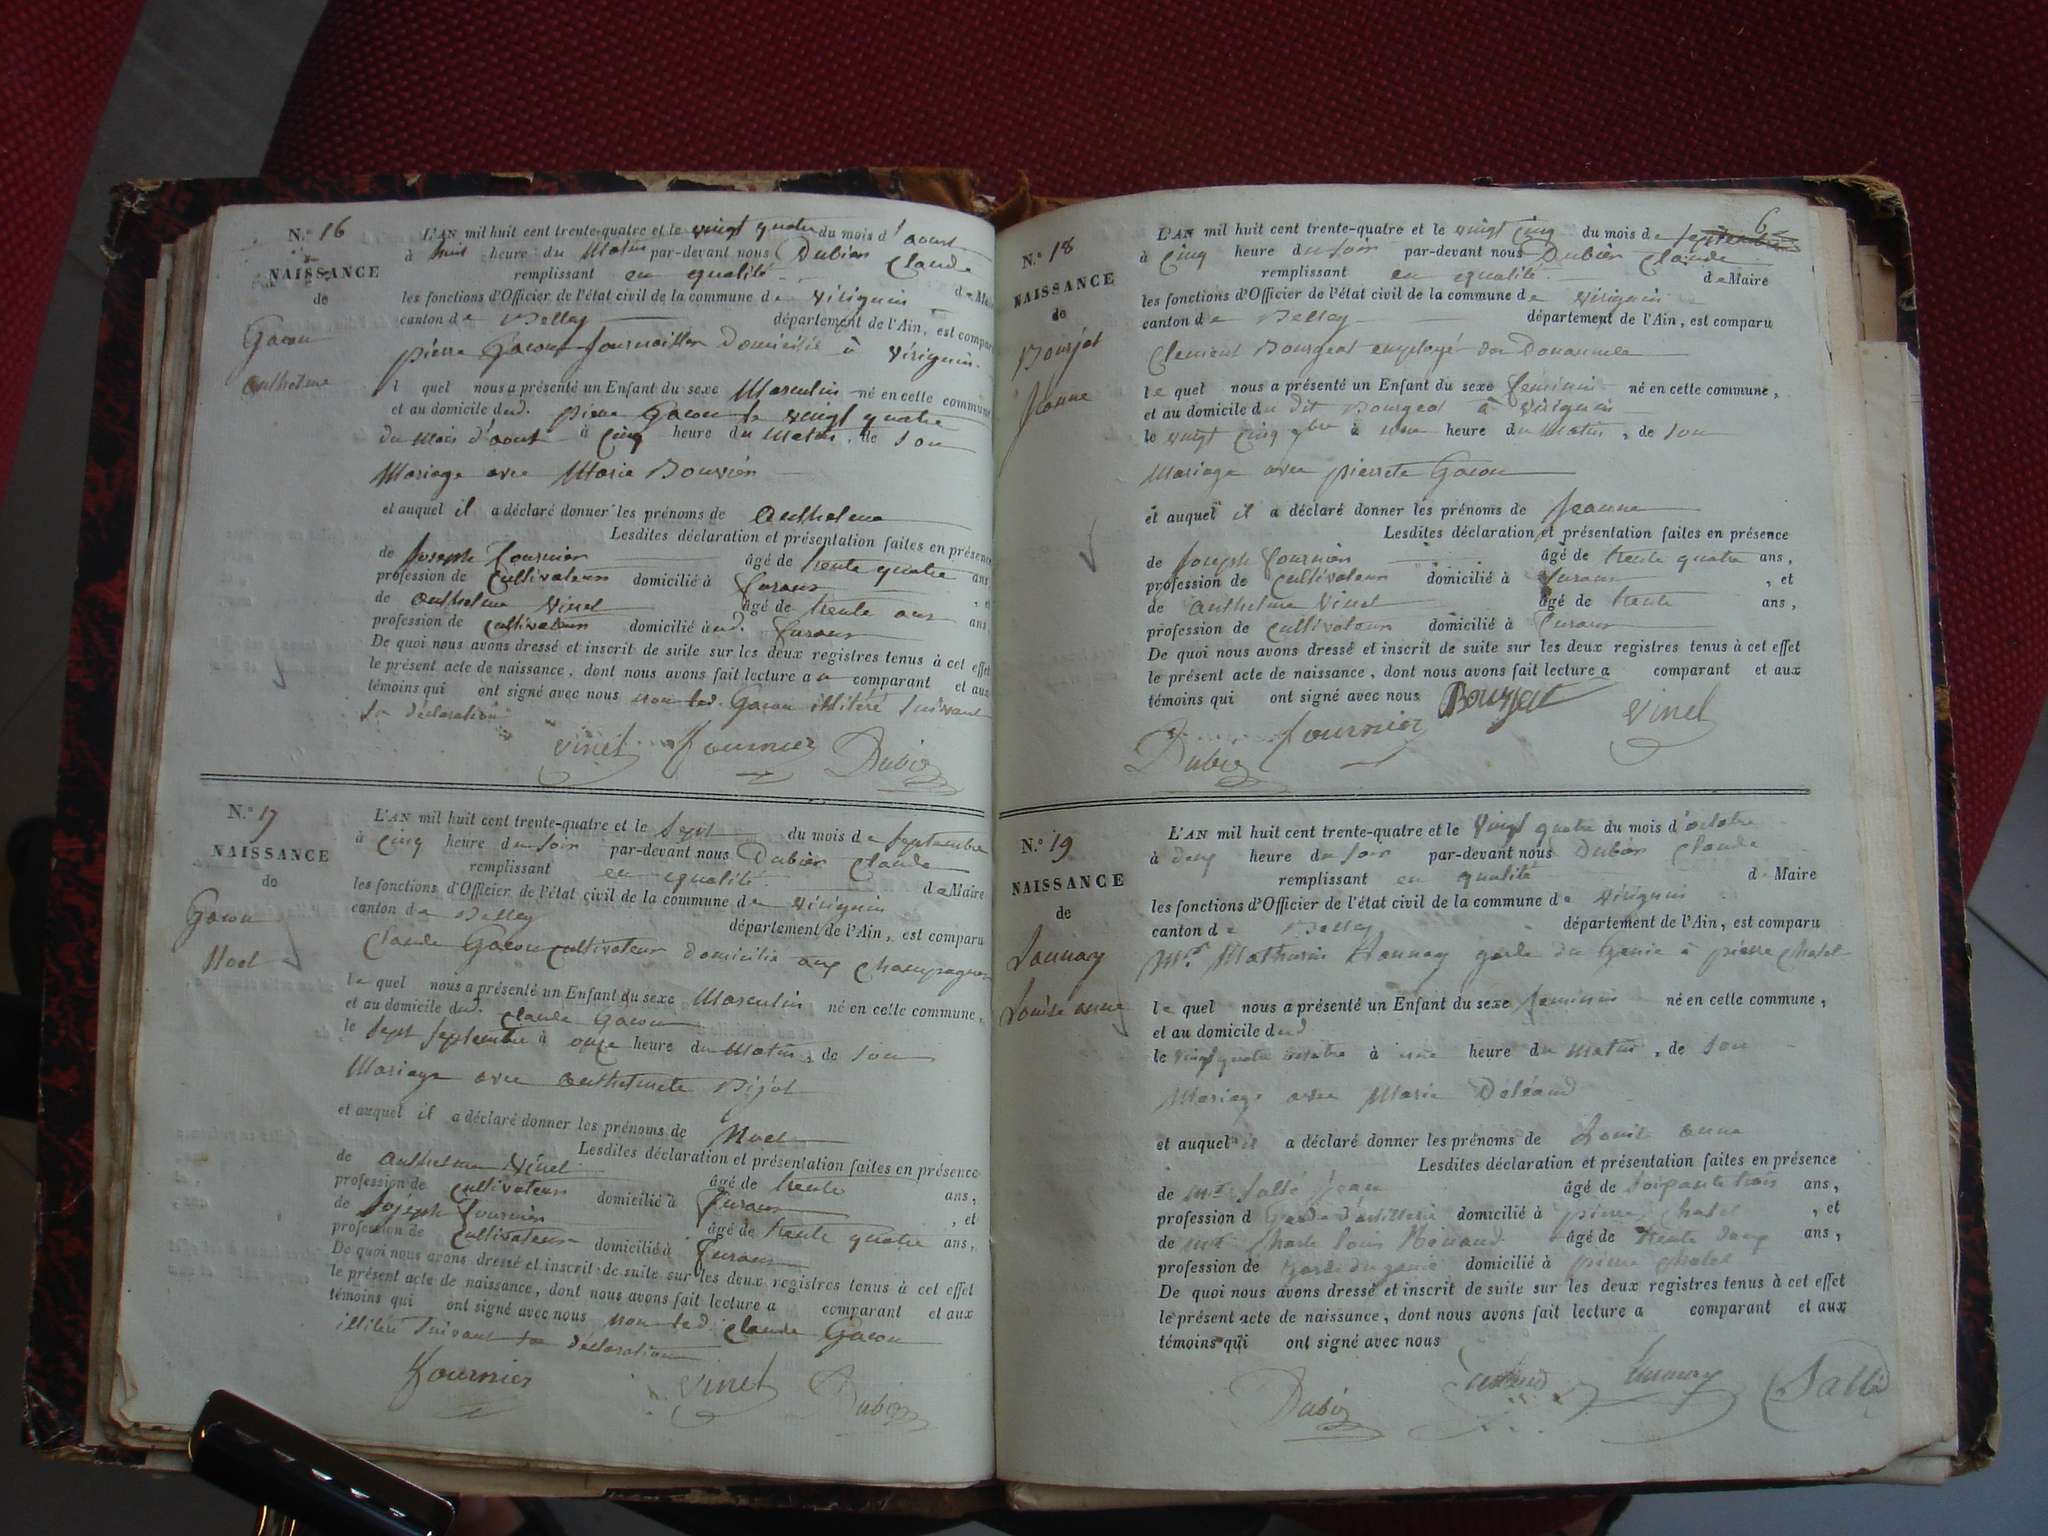 N.° 16
NAISSANCE
de
Gacon
Anthelme
L'AN mil huit cent trente-quatre et le vingt quatre du mois d'aoust
à huit heure du Matin par-devant nous Dubier Claude
remplissant en qualité de Maire
les fonctions d'Officier de l'état civil de la commune de virignin
canton de Belley département de l'Ain, est comparu
pierre Gacon journaillier Domicilié à virignin
lequel nous a présenté un Enfant du sexe Masculin né en cette commune,
et au domicile dud. pierre Gacon le vingt quatre
du mois d'aout à cinq heure du Matin, de son
Mariage avec Marie Bouvier
et auquel il a déclaré donner les prénoms de Anthelme
Lesdites déclaration et présentation faites en présence
de Joseph fournier âgé de trente quatre ans,
profession de cultivateur domicilié à , et
de anthelme vinet âgé de trente ans ans,
profession de cultivateur domicilié aud.
De quoi nous avons dressé et inscrit de suite sur les deux registres tenus à cet effet
le présent acte de naissance, dont nous avons fait lecture au comparant et aux
témoins qui ont signé avec nous non led. Gacon illitéré suivant
sa déclaration
vinet fournier Dubier
N.° 17
NAISSANCE
de
Gacon
Noel
L'AN mil huit cent trente-quatre et le sept du mois de septembre
à cinq heure du soir par-devant nous Dubier Claude
remplissant en qualité de Maire
les fonctions d'Officier de l'état civil de la commune de virignin
canton de Belley département de l'Ain, est comparu
Claude Gacon cultivateur domicilié aux champagnes
lequel nous a présenté un Enfant du sexe Masculin né en cette commune,
et au domicile dud. Claude Gacon
le sept septembre à onze heure du Matin, de son
Mariage avec anthelmete Bijot
et auquel il a déclaré donner les prénoms de Noel
Lesdites déclaration et présentation faites en présence
de anthelme vinet âgé de trente ans,
profession de cultivateur domicilié à , et
de Joseph fournier âgé de trente quatre ans,
profession de cultivateur domicilié à
De quoi nous avons dressé et inscrit de suite sur les deux registres tenus à cet effet
le présent acte de naissance, dont nous avons fait lecture a comparant et aux
témoins qui ont signé avec nous non led. Claude Gacon
illitéré suivant sa déclaration
fournier vinet Dubier
6
N.° 18
NAISSANCE
de
Bourjot
Jeanne
L'AN mil huit cent trente-quatre et le vingt cinq du mois de septembre
à cinq heure du soir par-devant nous Dubier Claude
remplissant en qualité de Maire
les fonctions d'Officier de l'état civil de la commune de virignin
canton de Belley département de l'Ain, est comparu
Clement Bourgeat employé
lequel nous a présenté un Enfant du sexe feminin né en cette commune,
et au domicile du dit Bourgeat à virignin
le vingt cinq 7bre à une heure du Matin, de son
Mariage avec pierrete Gacon
et auquel il a déclaré donner les prénoms de Jeanne
Lesdites déclaration et présentation faites en présence
de Joseph fournier âgé de trente quatre ans,
profession de cultivateur domicilié à , et
de anthelme vinet âgé de trente ans,
profession de cultivateur domicilié à
De quoi nous avons dressé et inscrit de suite sur les deux registres tenus à cet effet
le présent acte de naissance, dont nous avons fait lecture a comparant et aux
témoins qui ont signé avec nous Bourjat vinet
Dubier fournier
N.° 19
NAISSANCE
de
Launay
Louise anne
L'AN mil huit cent trente-quatre et le vingt quatre du mois d'octobre
à deux heure du soir par-devant nous Dubier Claude
remplissant en qualité de Maire
les fonctions d'Officier de l'état civil de la commune de virignin
canton de Belley département de l'Ain, est comparu
Mr. Mathurin Launay garde du Genie à pierre Chatel
lequel nous a présenté un Enfant du sexe feminin né en cette commune,
et au domicile dud
le vingt quatre octobre à une heure du Matin, de son
Mariage avec Marie
et auquel il a déclaré donner les prénoms de Louise anne
Lesdites déclaration et présentation faites en présence
de Mr Sallé Jean âgé de soixante trois ans,
profession d Garde d'artillerie domicilié à pierre chatel , et
de Mr Charle Louis âgé de trente deux ans,
profession de garde du genie domicilié à pierre chatel
De quoi nous avons dressé et inscrit de suite sur les deux registres tenus à cet effet
le présent acte de naissance, dont nous avons fait lecture a comparant et aux
témoins qui ont signé avec nous
Dubier Launay Sallé